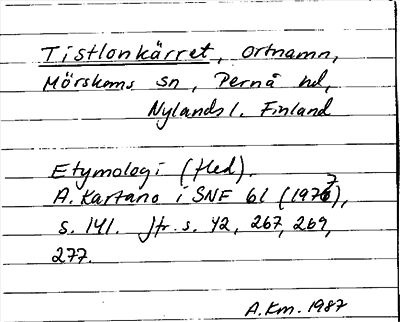 Tistlonkärret, ortnamn,
Mörskoms sn, Pernå hd,
Nylands l. Finland
Etymologi (fled).
A. Kartano i SNF 61 (1977),
s. 141. Jfr. s. 42, 267, 269,
277.
A.Km. 1987